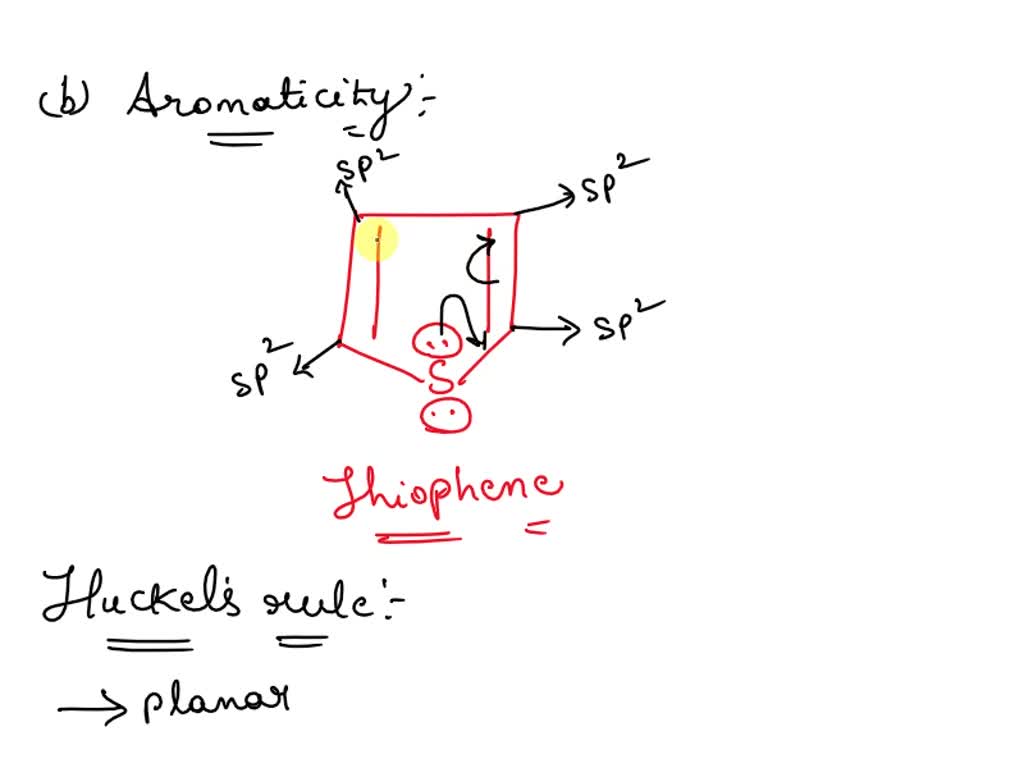 (b) Aromaticity:-
SP²
SP²
SP²
SP²
S
Thiophene
Huckel's rule:-
→ planar